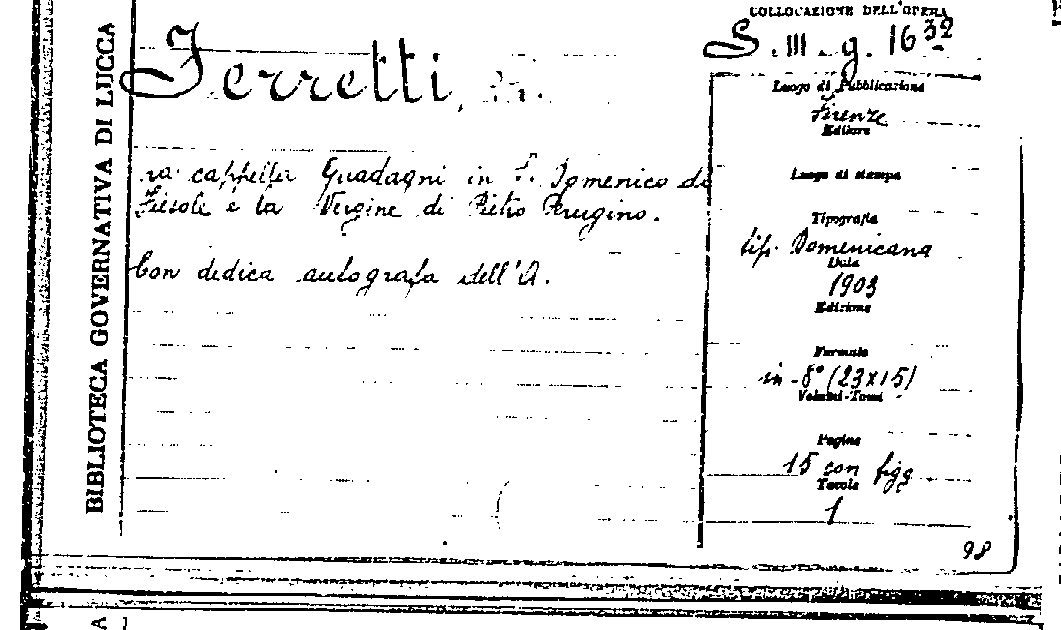 BIBLIOTECA GOVERNATIVA DI LUCCA
COLLOCAZIONE DELL'OPERA
S. III. g. 16 32
Ferretti,
cappella Guadagni in S. Domenico di
Fiesole e la Vergine di Pietro Perugino.
Con dedica autografa dell'A.
Luogo di Pubblicazione
Firenze
Editore
Luogo di stampa
Tipografia
tip. Domenicana
Data
1903
Edizione
Formato
in-8° (23x15)
Volumi-Tomi
Pagine
15 con figg
Tavole
1
98
A